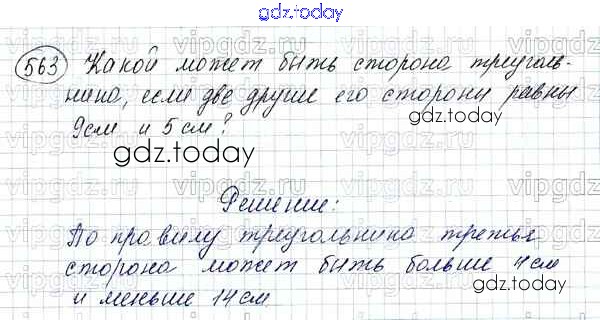 gdz.today
563 Какой может быть сторона треуголь-
ника, если две другие его стороны равны
9см и 5см?
gdz.today
Решение:
По правилу треугольника третья
сторона может быть больше 4см
gdz.today
и меньше 14см.